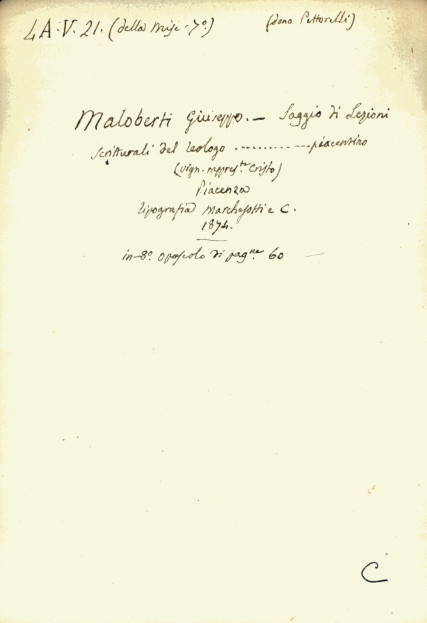 4A.V.21. (della Misc. 7º) (dono Pettorelli)
Maloberti Giuseppe. — Saggio di Lezioni
scritturali del teologo ............ piacentino
(vign. rappres.te Cristo)
Piacenza
tipografia Marchesotti e C.
1874.
in-8º opuscolo di pag.ne 60 —
C